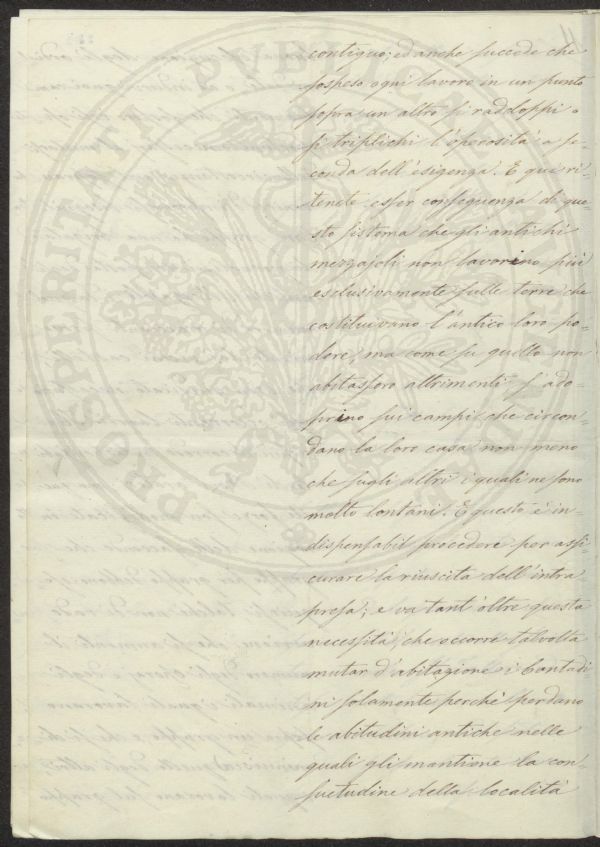 contiguo; ed anche succede che
sospeso ogni lavoro in un punto
sopra un altro si raddoppi o
si triplichi l'operosità a se-
conda dell'esigenza. E qui ri-
tenete esser conseguenza di que-
sto sistema che gli antichi
mezzajoli non lavorino più
esclusivamente sulle terre che
costituivano l'antico loro po-
dere, ma come se quello non
abitassero altrimenti s'ado-
prino sui campi che circon-
dano la loro casa non meno
che sugli altri i quali ne sono
molto lontani. E questo è in-
dispensabil procedere per assi-
curare la riuscita dell'intra
presa; e va tant'oltre questa
necessità, che occorre talvolta
mutar d'abitazione i Contadi
ni solamente perchè perdano
le abitudini antiche nelle
quali gli mantiene la con-
suetudine della località
PROSPERITATI PVBL